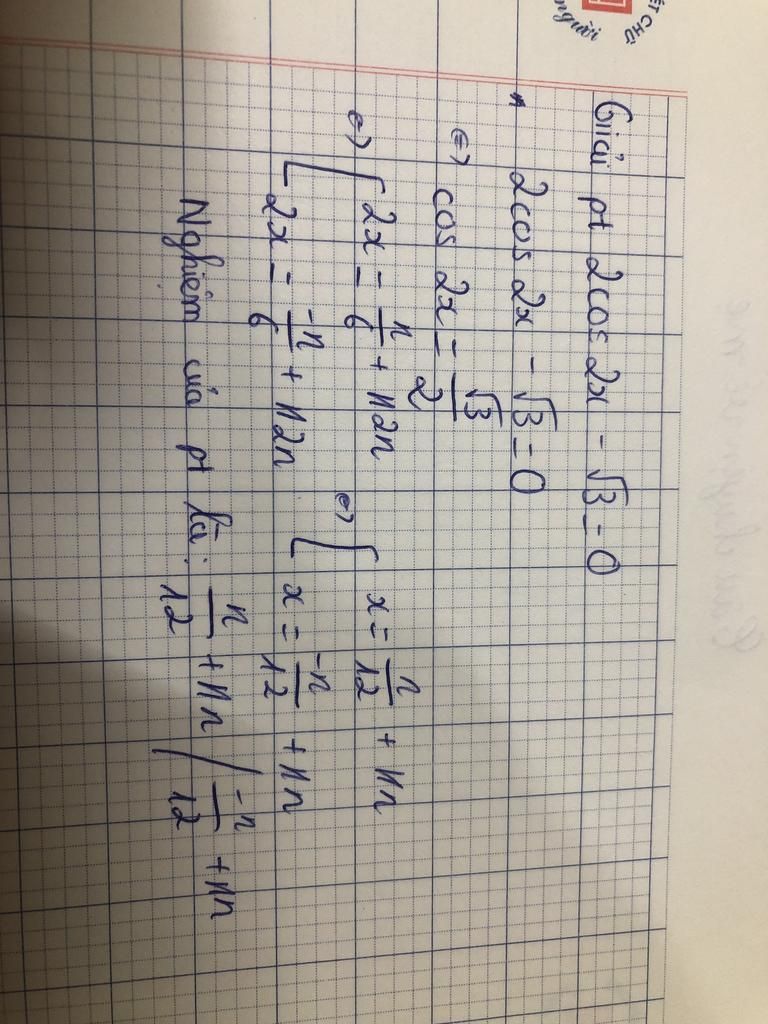 ẾT CHỮ
người
Giải pt 2cos 2x - √3 = 0
* 2cos 2x - √3 = 0
⇔ cos 2x = √3/2
⇔ [ 2x = π/6 + k2π ⇔ [ x = π/12 + kπ
2x = -π/6 + k2π x = -π/12 + kπ
Nghiệm của pt là: π/12 + kπ / -π/12 + kπ